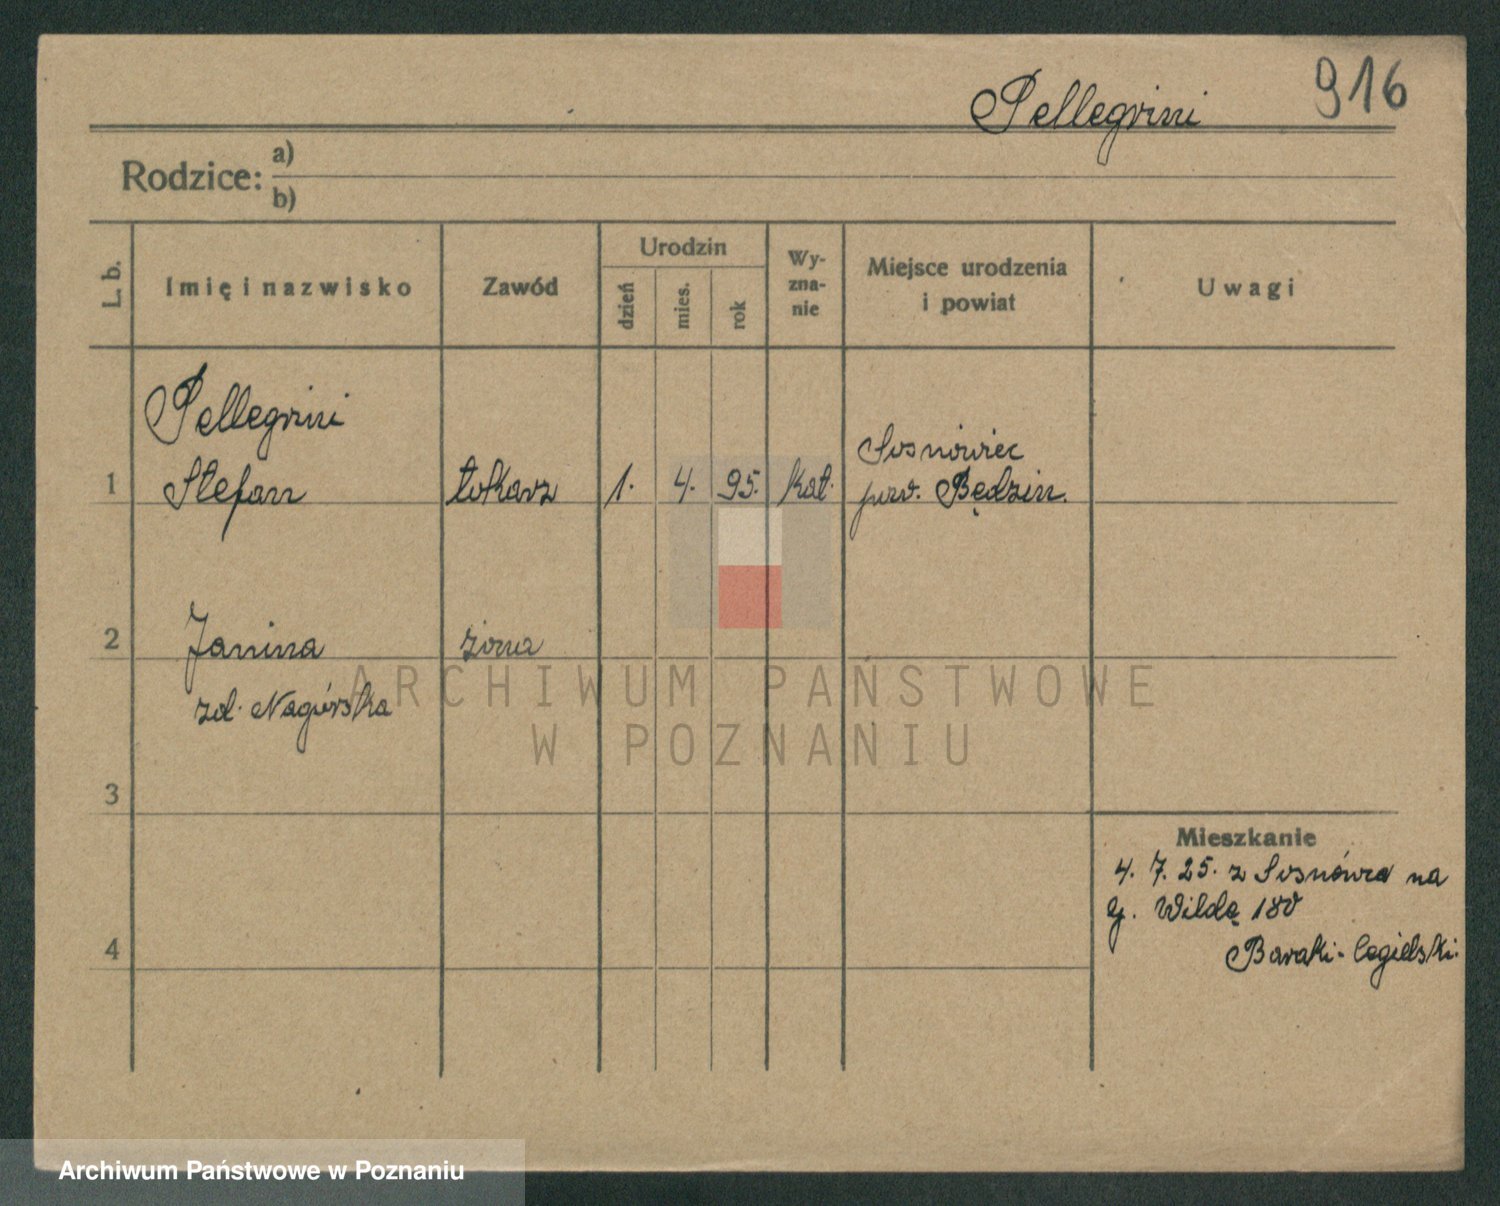 Pellegrini 916
Rodzice: a)
b)
L. b. Imię i nazwisko Zawód Urodzin dzień mies. rok Wy-zna-nie Miejsce urodzenia i powiat Uwagi
Pellegrini
1 Stefan tokarz 1. 4. 95. kat. Sosnowiec
pow. Będzin.
2 Janina żona
zd. Nagórska
ARCHIWUM PAŃSTWOWE
W POZNANIU
3
Mieszkanie
4. 7. 25. z Sosnówca na
g. Wildę 180
4 Baraki-Cegielski.
Archiwum Państwowe w Poznaniu